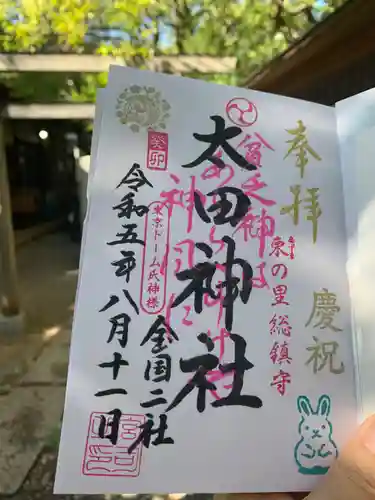 奉拝
慶祝
東の里総鎮守
貧乏神は
太田神社
全国二社
癸卯
東京ドーム氏神様
令和五年八月十一日